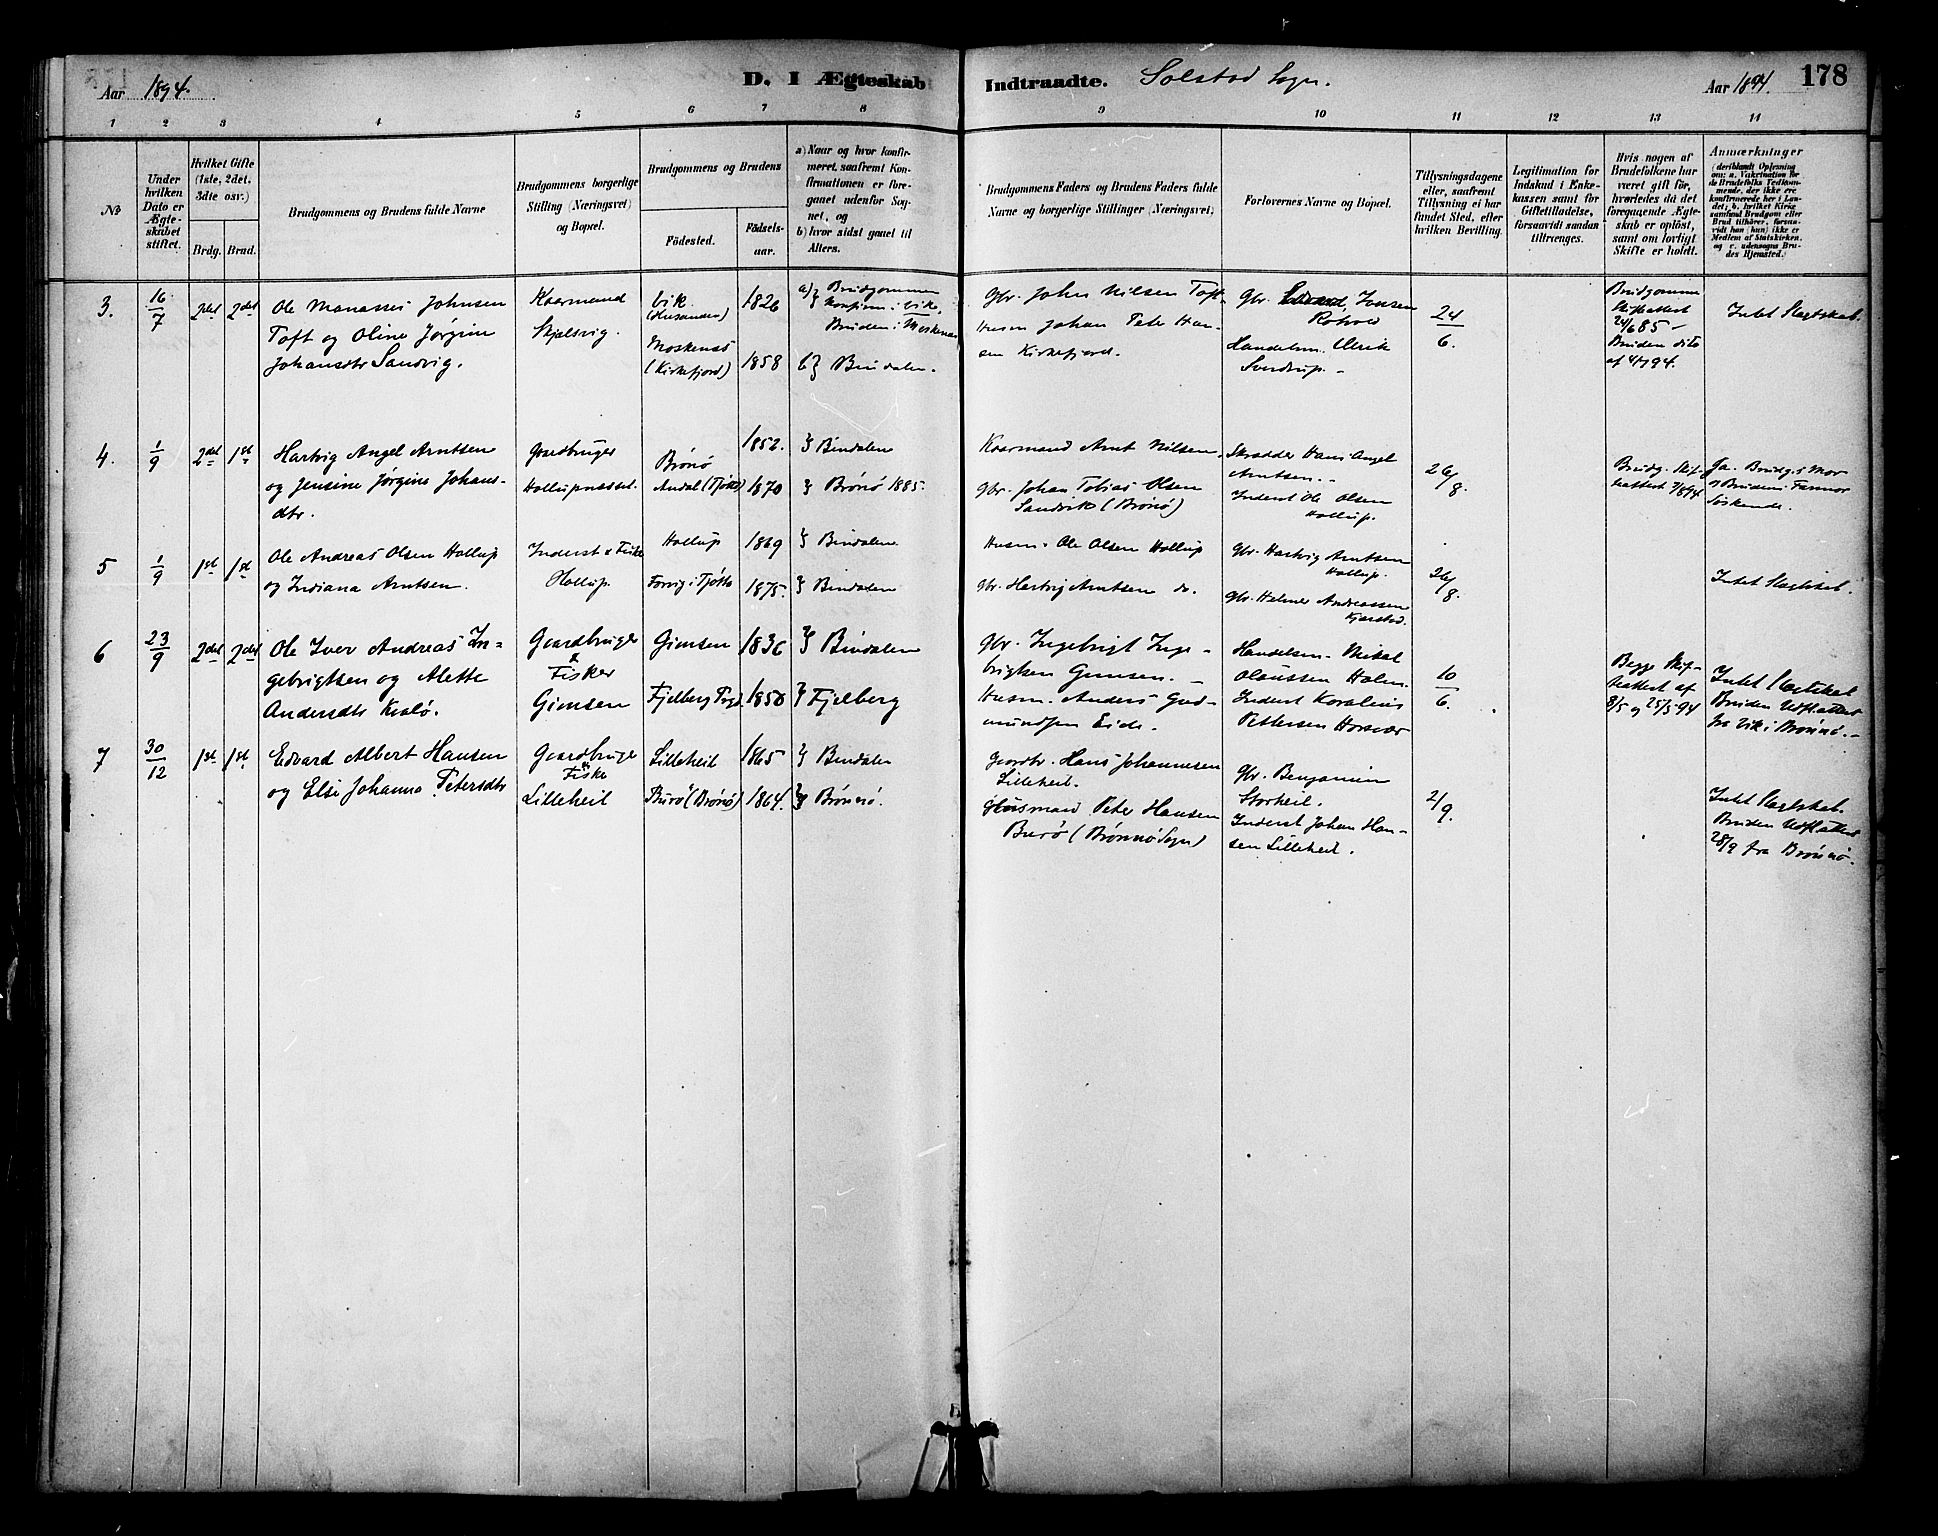 Aar 1894.
D. I Ægteskab Indtraadte. Solstad Sogn.
Aar 1894. 178
1 2 3 4 5 6 7 8 9 10 11 12 13 14
№
Under hvilken Dato er Ægteskabet stiftet.
Hvilket Gifte (1ste, 2det, 3dte osv.)
Brdg. Brud.
Brudgommens og Brudens fulde Navne
Brudgommens borgerlige Stilling (Næringsvei) og Bopæl.
Brudgommens og Brudens
Födested.
Födselsaar.
a) Naar og hvor konfirmeret, saafremt Konfirmationen er foregaaet udenfor Sognet, og
b) hvor sidst gaaet til Alters.
Brudgommens Faders og Brudens Faders fulde Navne og borgerlige Stillinger (Næringsvei).
Forlovernes Navne og Bopæl.
Tillysningsdagene eller, saafremt Tillysning ei har fundet Sted, efter hvilken Bevilling.
Legitimation for Indskud i Enkekassen samt for Giftetilladelse, forsaavidt saadan tiltrænges.
Hvis nogen af Brudefolkene har været gift för, hvorledes da det foregaaende Ægteskab er oplöst, samt om lovligt Skifte er holdt.
Anmærkninger
(deriblandt Oplysning om: a. Vakcination for de Brudefolks Vedkommende, der ikke ere konfirmerede her i Landet; b. hvilket Kirkesamfund Brudgom eller Brud tilhører, forsaavidt han (hun) ikke er Medlem af Statskirken, og c. udensogns Brudes Hjemsted.)
3. 16/7 2det 2det
Ole Manasses Johnsen
Toft og Oline Jørgine
Johansdtr Sandvig.
Kaarmand
Skjelsvig.
Vik
1826
Moskenæs
(Kirkefjord)
1858
a) Brudgommen
konfirm. i Vik.
Bruden i Moskenæs
b) Bindalen.
Gbr. John Nilsen Toft.
Husm Johan Peter Hansen
Kirkefjord.
Gbr. Edvard Jensen
Røhold
Handelsm. Ulrik
Sverdrup.
24/6.
Brudgomme
Skifteattest
24/6 85 –
Bruden dito
af 4/7 94.
Intet Slægtskab.
4. 1/9 2det 1st
Hartvig Angel Arntsen
og Jensine Jørgine Johansdtr.
Gaardbruger
Hollupnæsset.
Brönö
1852.
Andal (Tjøtta) 1870
Bindalen
Brönö 1885.
Kaarmand Arnt Nilsen.
Gbr. Johan Tobias Olsen
Sandvik (Brönö)
Skrædder Hans Angel
Arntsen.
Inderst Ole Olsen
Hollup.
26/8.
Brudg. Skifteattest 7/8 94
Ja. Brudg.s Mor
og Brudens Farmor
Søskende.
5 1/9 1st 1st
Ole Andreas Olsen Hollup
og Indiana Arntsen.
Inderst & Fisker
Hollup.
Hollup 1869
Forvig i Tjøtta 1875.
Bindalen
Bindalen
Husm. Ole Olsen Hollup
Gbr. Hartvig Arntsen do.
Gbr. Hartvig Arntsen
Hollup.
Gbr. Helmer Andreassen
Kjærstad.
26/8.
Intet Slægtskab.
6 23/9 2det 2det
Ole Iver Andreas Ingebrigtsen og Alette
Andersdtr Kvalö.
Gaardbruger
&
Fisker
Gimsen
Gimsen 1836
Fjelberg Prgd. 1850
Bindalen
Fjelberg
Gbr. Ingebrigt Ingebrigtsen Gimsen. –
Husm. Anders Gudmundsen Eide.
Handelsm. Mikal
Olaussen Holm.
Inderst Koralius
Pettersen Horsvær
10/6.
Begge Skifteattest af
8/5 og 25/5 94
Intet Slægtskab
Bruden Udflattest
fra Vik i Brönnö. –
7 30/12 1st 1st
Edvard Albert Hansen
og Elsi Johanna Petersdtr
Gaardbruger
&
Fisker
Lilleheil
Lilleheil 1865
Burö (Brönö) 1864.
Bindalen
Brönnö.
Gaardbr. Hans Johannesen
Lilleheil.
Husmand Peter Hansen
Burö (Brönnö Sogn)
Gbr. Benjamin
Storheil.
Inderst Johan Hansen Lilleheil.
2/9.
Intet Slægtskab.
Bruden Udflattest
28/9 fra Brönnö.